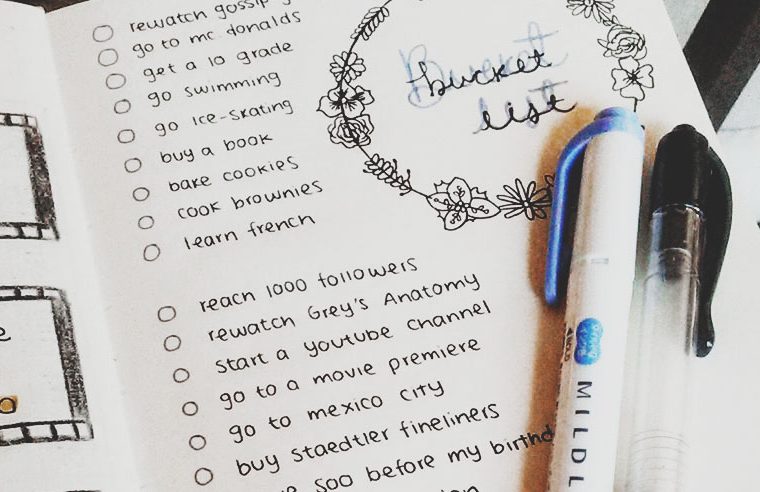 rewatch gossip
go to mc donalds
get a 10 grade
go swimming
go ice-skating
buy a book
bake cookies
cook brownies
learn french
bucket
list
reach 1000 followers
rewatch Grey's Anatomy
start a youtube channel
go to a movie premiere
go to mexico city
buy staedtler fineliners
500 before my birthd
MILDL